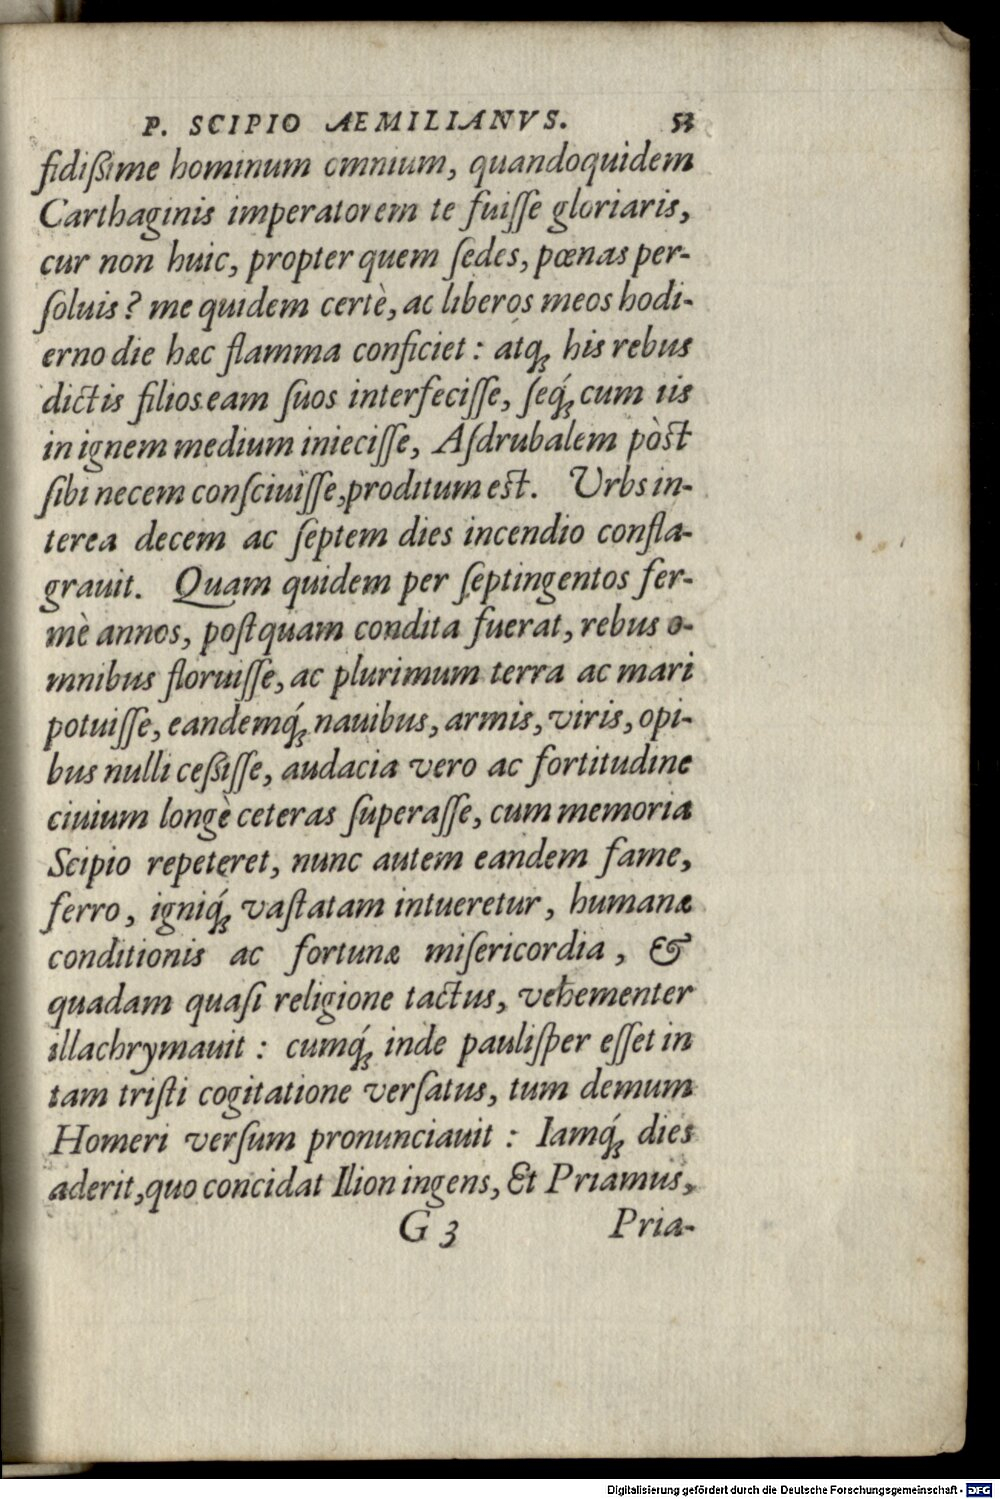 P. SCIPIO AEMILIANVS. 53
fidißime hominum omnium, quandoquidem
Carthaginis imperatorem te fuiſſe gloriaris,
cur non huic, propter quem ſedes, pœnas per-
ſoluis? me quidem certè, ac liberos meos hodi-
erno die hæc flamma conficiet: atqꝫ his rebus
dictis filios eam ſuos interfeciſſe, ſeq́ꝫ cum iis
in ignem medium inieciſſe, Aſdrubalem pòst
ſibi necem conſciuiſſe, proditum est. Urbs in-
terea decem ac ſeptem dies incendio confla-
grauit. Quam quidem per ſeptingentos fer-
mè annos, poſtquam condita fuerat, rebus o-
mnibus floruiſſe, ac plurimum terra ac mari
potuiſſe, eandemq́ꝫ nauibus, armis, viris, opi-
bus nulli ceßiſſe, audacia vero ac fortitudine
ciuium longè ceteras ſuperaſſe, cum memoria
Scipio repeteret, nunc autem eandem fame,
ferro, igniq́ꝫ vaſtatam intueretur, humanæ
conditionis ac fortunæ miſericordia, &
quadam quaſi religione tactus, vehementer
illachrymauit: cumq́ꝫ inde pauliſper eſſet in
tam triſti cogitatione verſatus, tum demum
Homeri verſum pronunciauit: Iamq́ꝫ dies
aderit, quo concidat Ilion ingens, Et Priamus,
G 3 Pria-
Digitalisierung gefördert durch die Deutsche Forschungsgemeinschaft - DFG